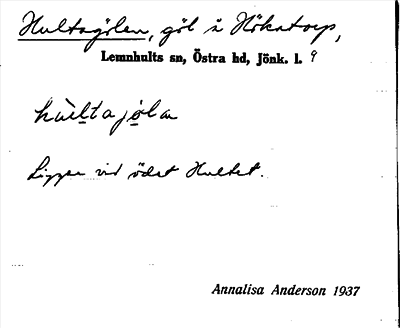 Hultagölen, göl å Hökatorp,
Lemnhults sn, Östra hd, Jönk. l. 9
hùltajøla
Ligger vid ödet Hultet.
Annalisa Anderson 1937